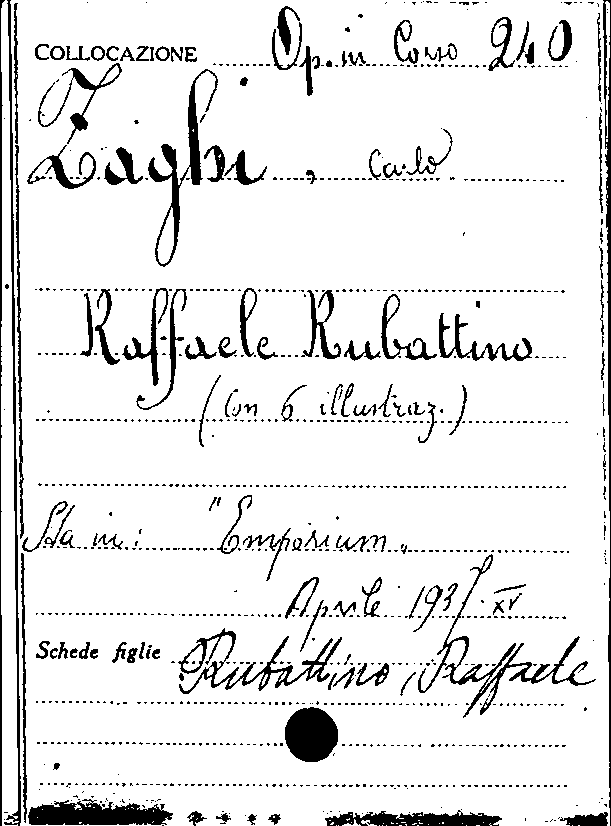 COLLOCAZIONE Op. in Corso 240
Zaghi, Carlo
Raffaele Rubattino
(Con 6 illustraz.)
Sta in: "Emporium„
Aprile 1937. XV
Schede figlie Rubattino, Raffaele